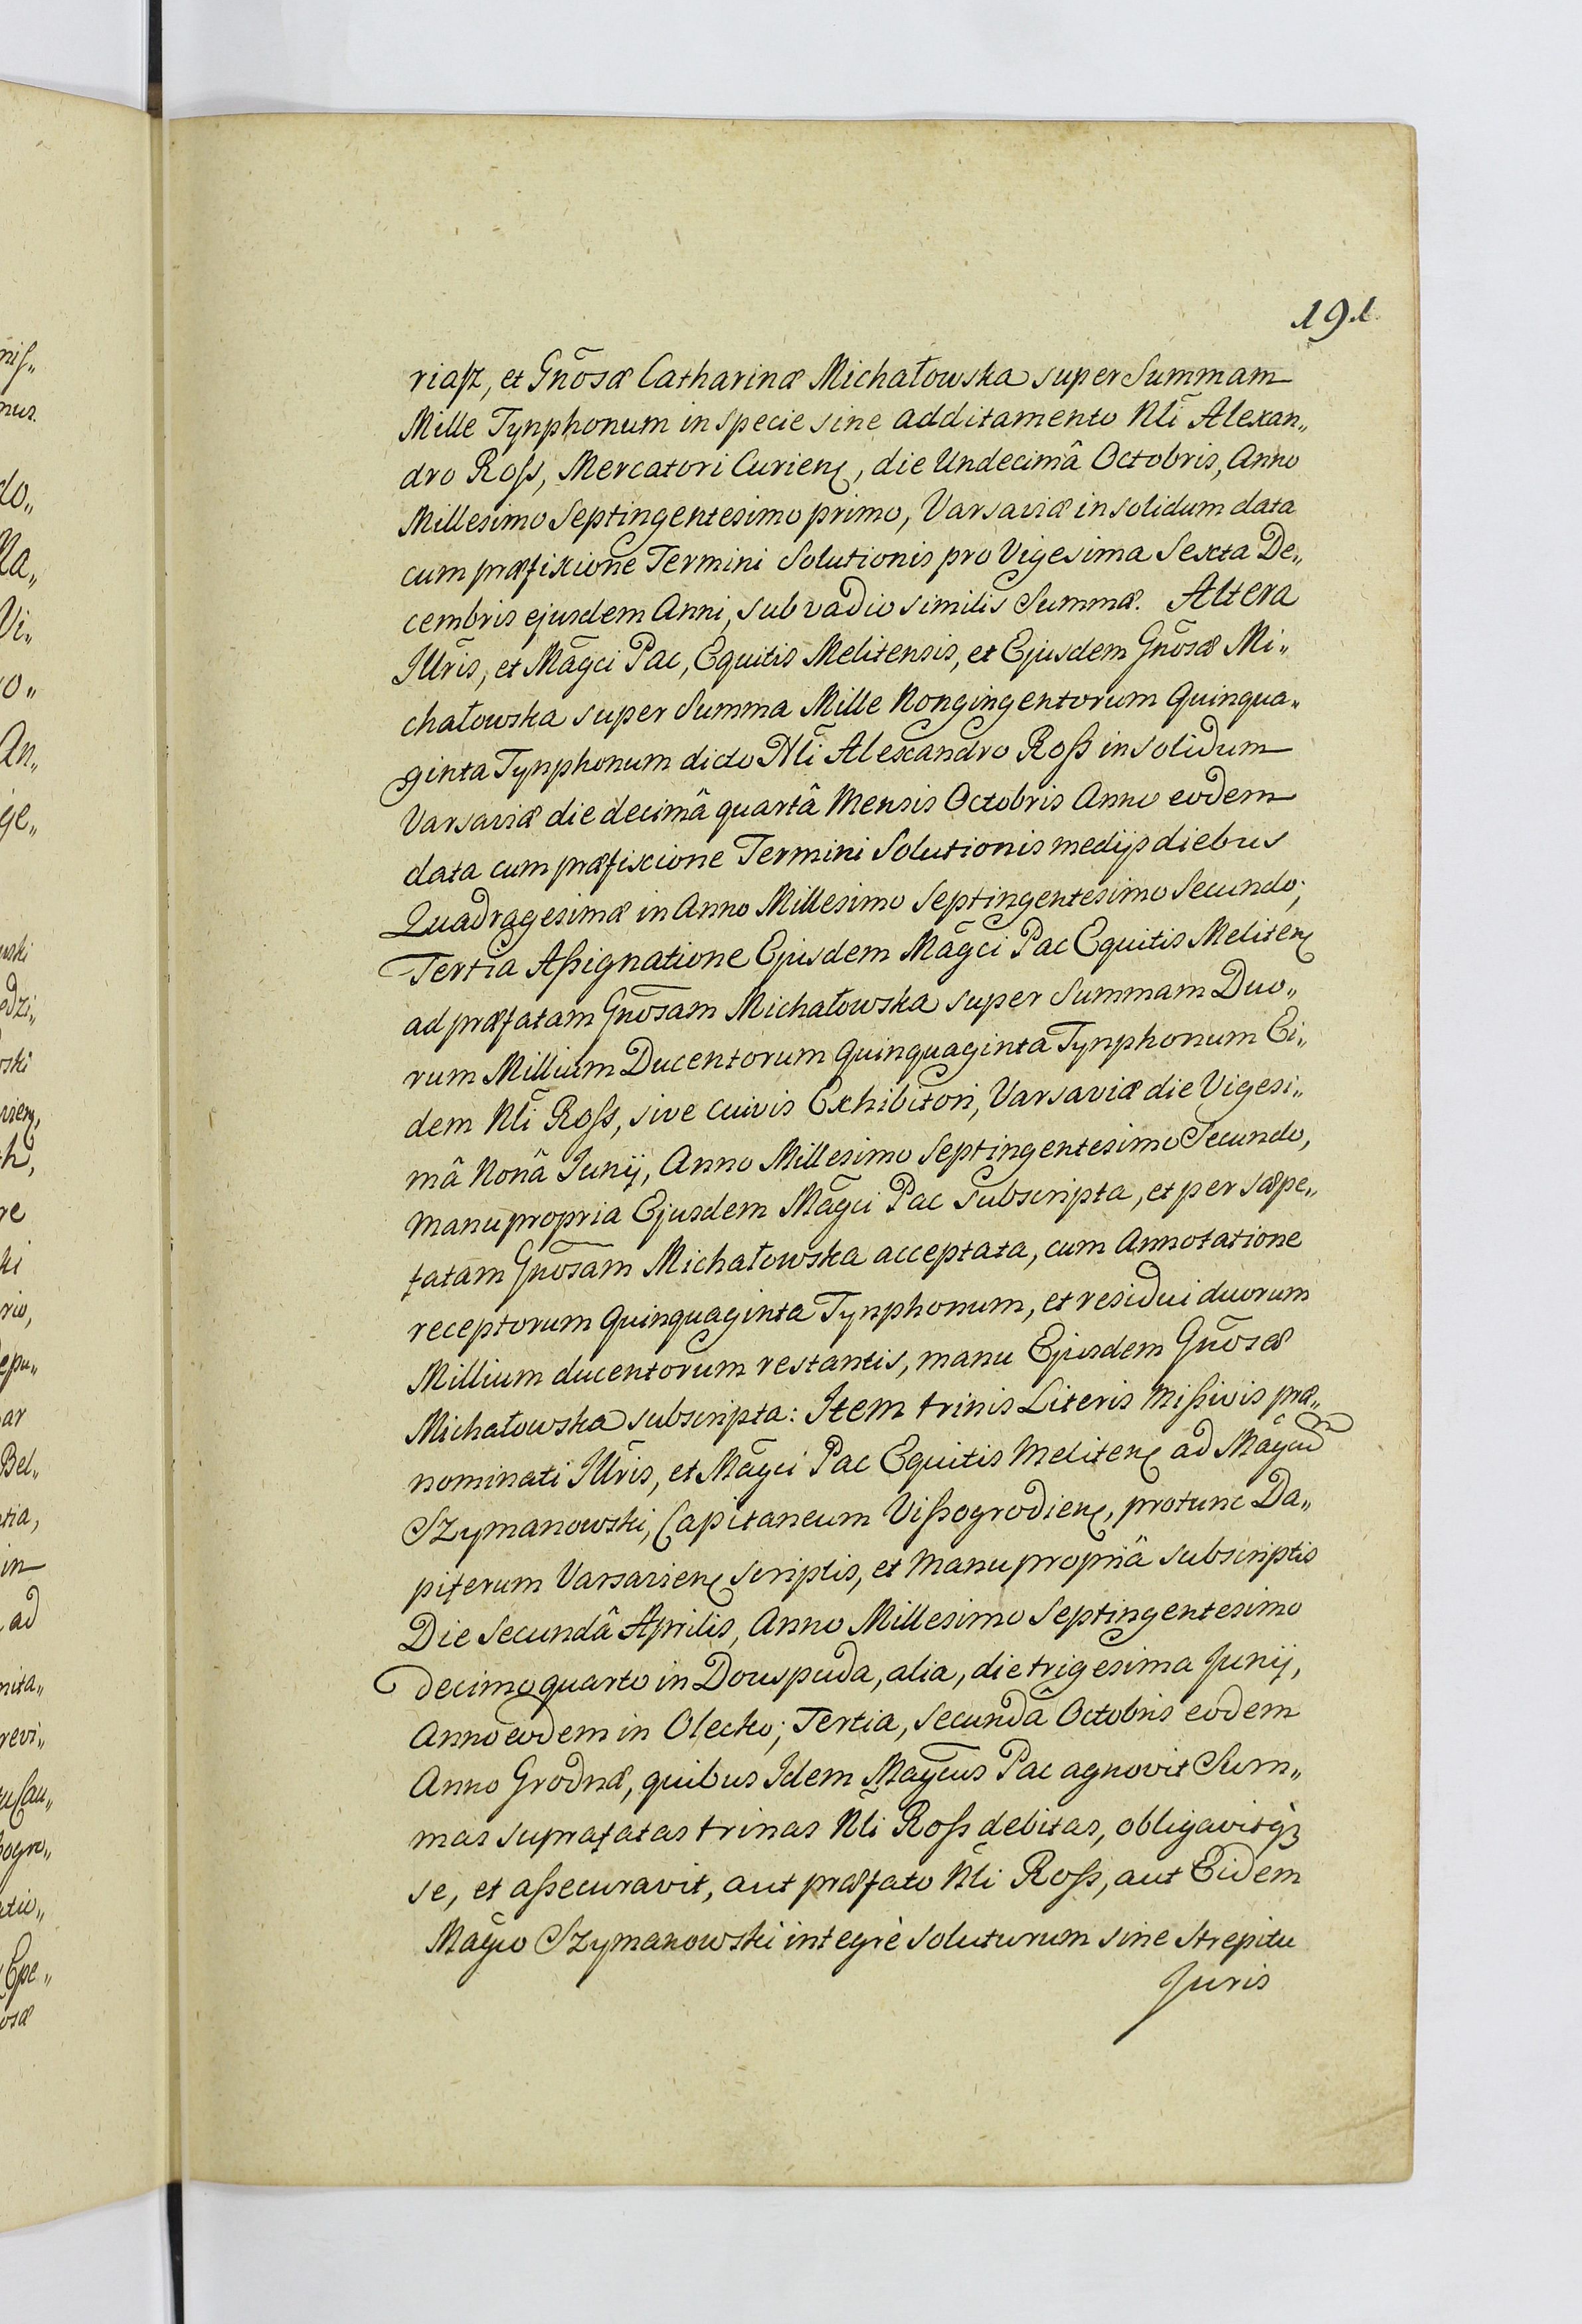 191.
riasz, et Gnõsæ Catharinæ Michałowska super Summam
Mille Tynphonum in specie sine additamento Nli Alexan„
dro Ross, Mercatori Curien, die Undecimâ Octobris, Anno
Millesimo Septingentesimo primo, Varsaviæ in solidum data
cum præfixione Termini Solutionis pro Vigesima Sexta De„
cembris ejusdem Anni, sub vadio similis Summæ. Altera
Illris, et Magci Pac, Equitis Melitensis, et Ejusdem Gnõsæ Mi„
chałowska super Summa Mille Nongingentorum Quinqua„
ginta Tynphonum dicto Nli Alexandro Ross in solidum
Varsaviæ die decimâ quartâ Mensis Octobris Anno eodem
data cum præfixione Termini Solutionis medijs diebus
Quadragesimæ in Anno Millesimo Septingentesimo Secundo;
Tertia Assignatione Ejusdem Magci Pac Equitis Meliten
ad præfatam Gnõsam Michałowska super Summam Duo„
rum Millium Ducentorum Quinquaginta Tynphonum Ei„
dem Nli Ross, sive cuivis Exhibitori, Varsaviæ die Vigesi„
mâ Nonâ Junij, Anno Millesimo Septingentesimo Secundo,
manu propria Ejusdem Magci Pac Subscripta, et per sæpe„
fatam Gnõsam Michałowska acceptata, cum Annotatione
receptorum Quinquaginta Tynphonum, et residui duorum
Millium ducentorum restantis, manu Ejusdem Gnõsæ
Michałowska subscripta: Item trinis Literis Missivis præ„
nominati Illris, et Magci Pac Equitis Meliten ad Magcum
Szymanowski, Capitaneum Vissogrodien, protunc Da„
piferum Varsavien scriptis, et manu propriâ subscriptis
Die Secundâ Aprilis, Anno Millesimo Septingentesimo
decimo quarto in Douspuda, alia, die trigesima Junij,
Anno eodem in Olecko; Tertia, Secundâ Octobris eodem
Anno Grodnæ, quibus Idem Magcus Pac agnovit Sum„
mas suprafatas trinas Nli Ross debitas, obligavitqȝ
se, et assecuravit, aut præfato Nli Ross, aut Eidem
Magco Szymanowski integrè soluturum sine strepitu
Juris